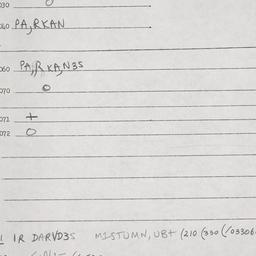 030
060 PA;RKAN
060 PA;R KA,N3S
070 O
071 +
072 O
1R DARVD3S MISTUMN, UBT (210 (330 (/03306